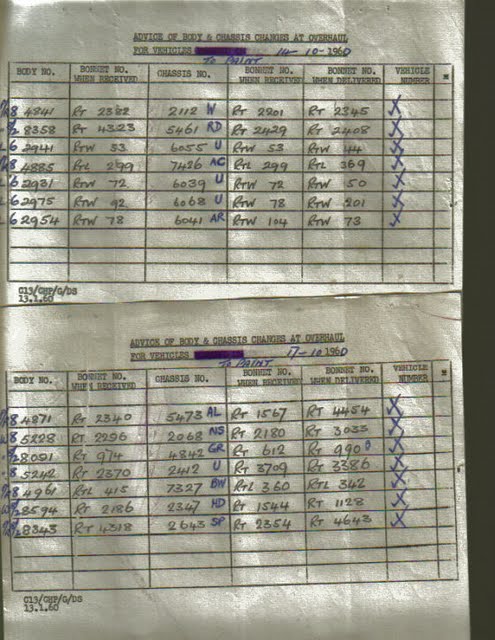 ADVICE OF BODY & CHASSIS CHANGES AT OVERHAUL
FOR VEHICLES 14-10-1960
TO PAINT
BODY NO. BONNET NO. WHEN RECEIVED CHASSIS NO. BONNET NO. WHEN RECEIVED BONNET NO. WHEN DELIVERED VEHICLE NUMBER
8 4841 RT 2382 2112 W RT 2201 RT 2345 X
8358 RT 4323 5461 RD RT 2429 RT 2408 X
6 2941 RTW 53 6055 U RTW 53 RTW 44 X
8 4885 RTL 299 7426 AC RTL 299 RTL 369 X
6 2931 RTW 72 6039 U RTW 72 RTW 50 X
6 2975 RTW 92 6068 U RTW 78 RTW 201 X
6 2954 RTW 78 6041 AR RTW 104 RTW 73 X
C13/GHP/G/DS
13.1.60
ADVICE OF BODY & CHASSIS CHANGES AT OVERHAUL
FOR VEHICLES 17-10 1960
TO PAINT
BODY NO. BONNET NO. WHEN RECEIVED CHASSIS NO. BONNET NO. WHEN RECEIVED BONNET NO. WHEN DELIVERED VEHICLE NUMBER
8 4871 RT 2340 5473 AL RT 1567 RT 4454 X
8 5228 RT 2296 2068 NS RT 2180 RT 3033 X
8091 RT 974 4842 GR RT 612 RT 990 X
8 5242 RT 2370 2412 U RT 3709 RT 3386 X
8 4961 RTL 415 7327 BW RTL 360 RTL 342 X
8594 RT 2186 2347 HD RT 1544 RT 1128 X
8343 RT 4318 2643 SP RT 2354 RT 4643 X
C13/GHP/G/DS
13.1.60